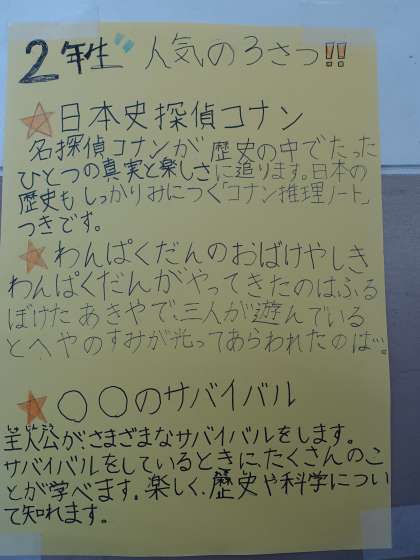 2年生 人気の3さつ!!
☆日本史探偵コナン
名探偵コナンが歴史の中でたった
ひとつの真実と楽しさに迫ります。日本の
歴史もしっかりみにつく「コナン推理ノート」
つきです。
☆わんぱくだんのおばけやしき
わんぱくだんがやってきたのは、ふる
ぼけたあきやで、三人が遊んでいる
とへやのすみが光ってあらわれたのは…。
★〇〇のサバイバル
主人公が、さまざまなサバイバルをします。
サバイバルをしているときに、たくさんのこ
とが学べます。楽しく、歴史や科学につい
て知れます。